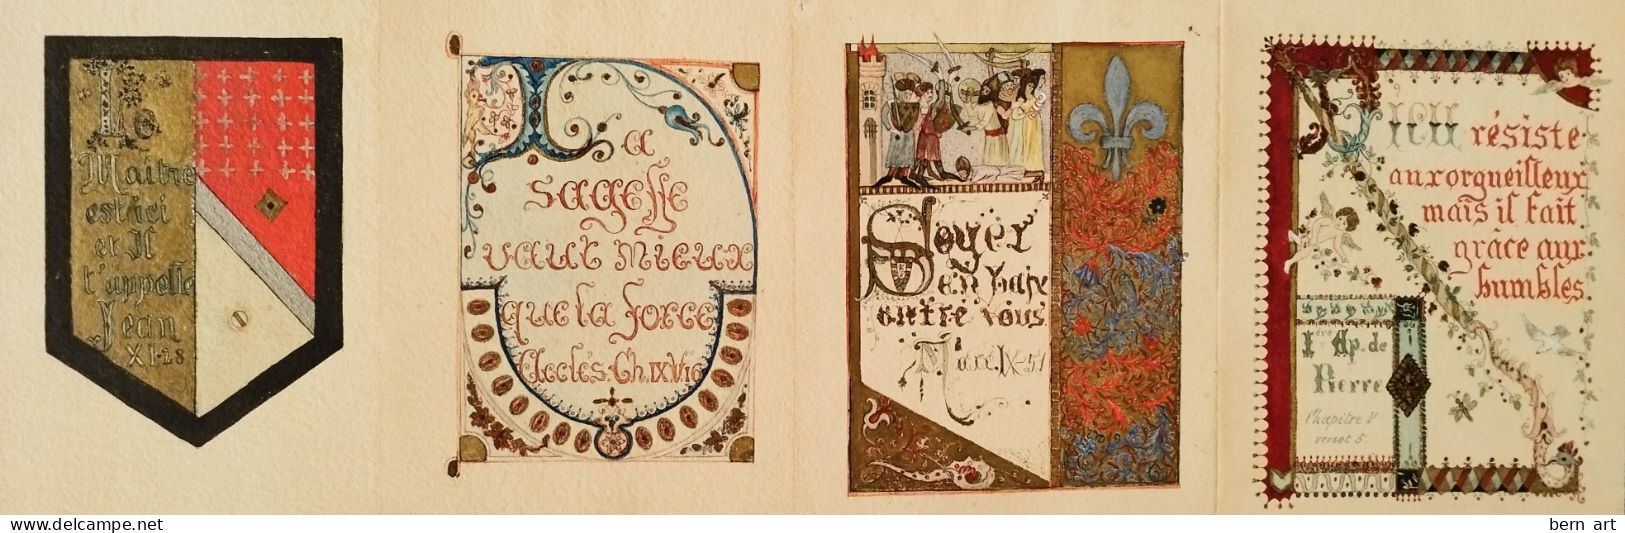 Le
Maitre
est ici
et Il
t'appelle
Jean
XI-28
La
sagesse
vaut mieux
que la force
Ecclés. Ch. IX V 16
Soyez
en paix
entre vous
Marc. IX-51
DIEU résiste
aux orgueilleux
mais il fait
grâce aux
humbles
1ère Ep. de
Pierre
Chapitre V
verset 5
www.delcampe.net
bern art